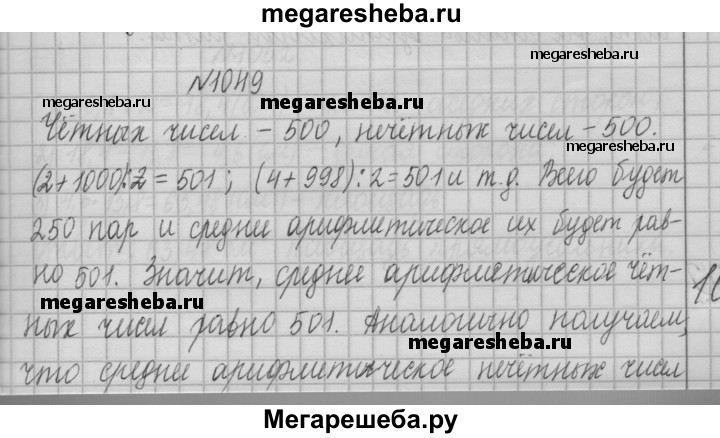 megaresheba.ru
megaresheba.ru
N1049
megaresheba.ru
Чётных чисел - 500, нечётных чисел - 500.
(2+1000):2 = 501; (4+998):2=501 и т.д. Всего будет
250 пар и среднее арифметическое их будет рав-
но 501. Значит, среднее арифметическое чёт-
megaresheba.ru
ных чисел равно 501. Аналогично получаем,
megaresheba.ru
что среднее арифметическое нечётных чисел
Мегарешеба.ру